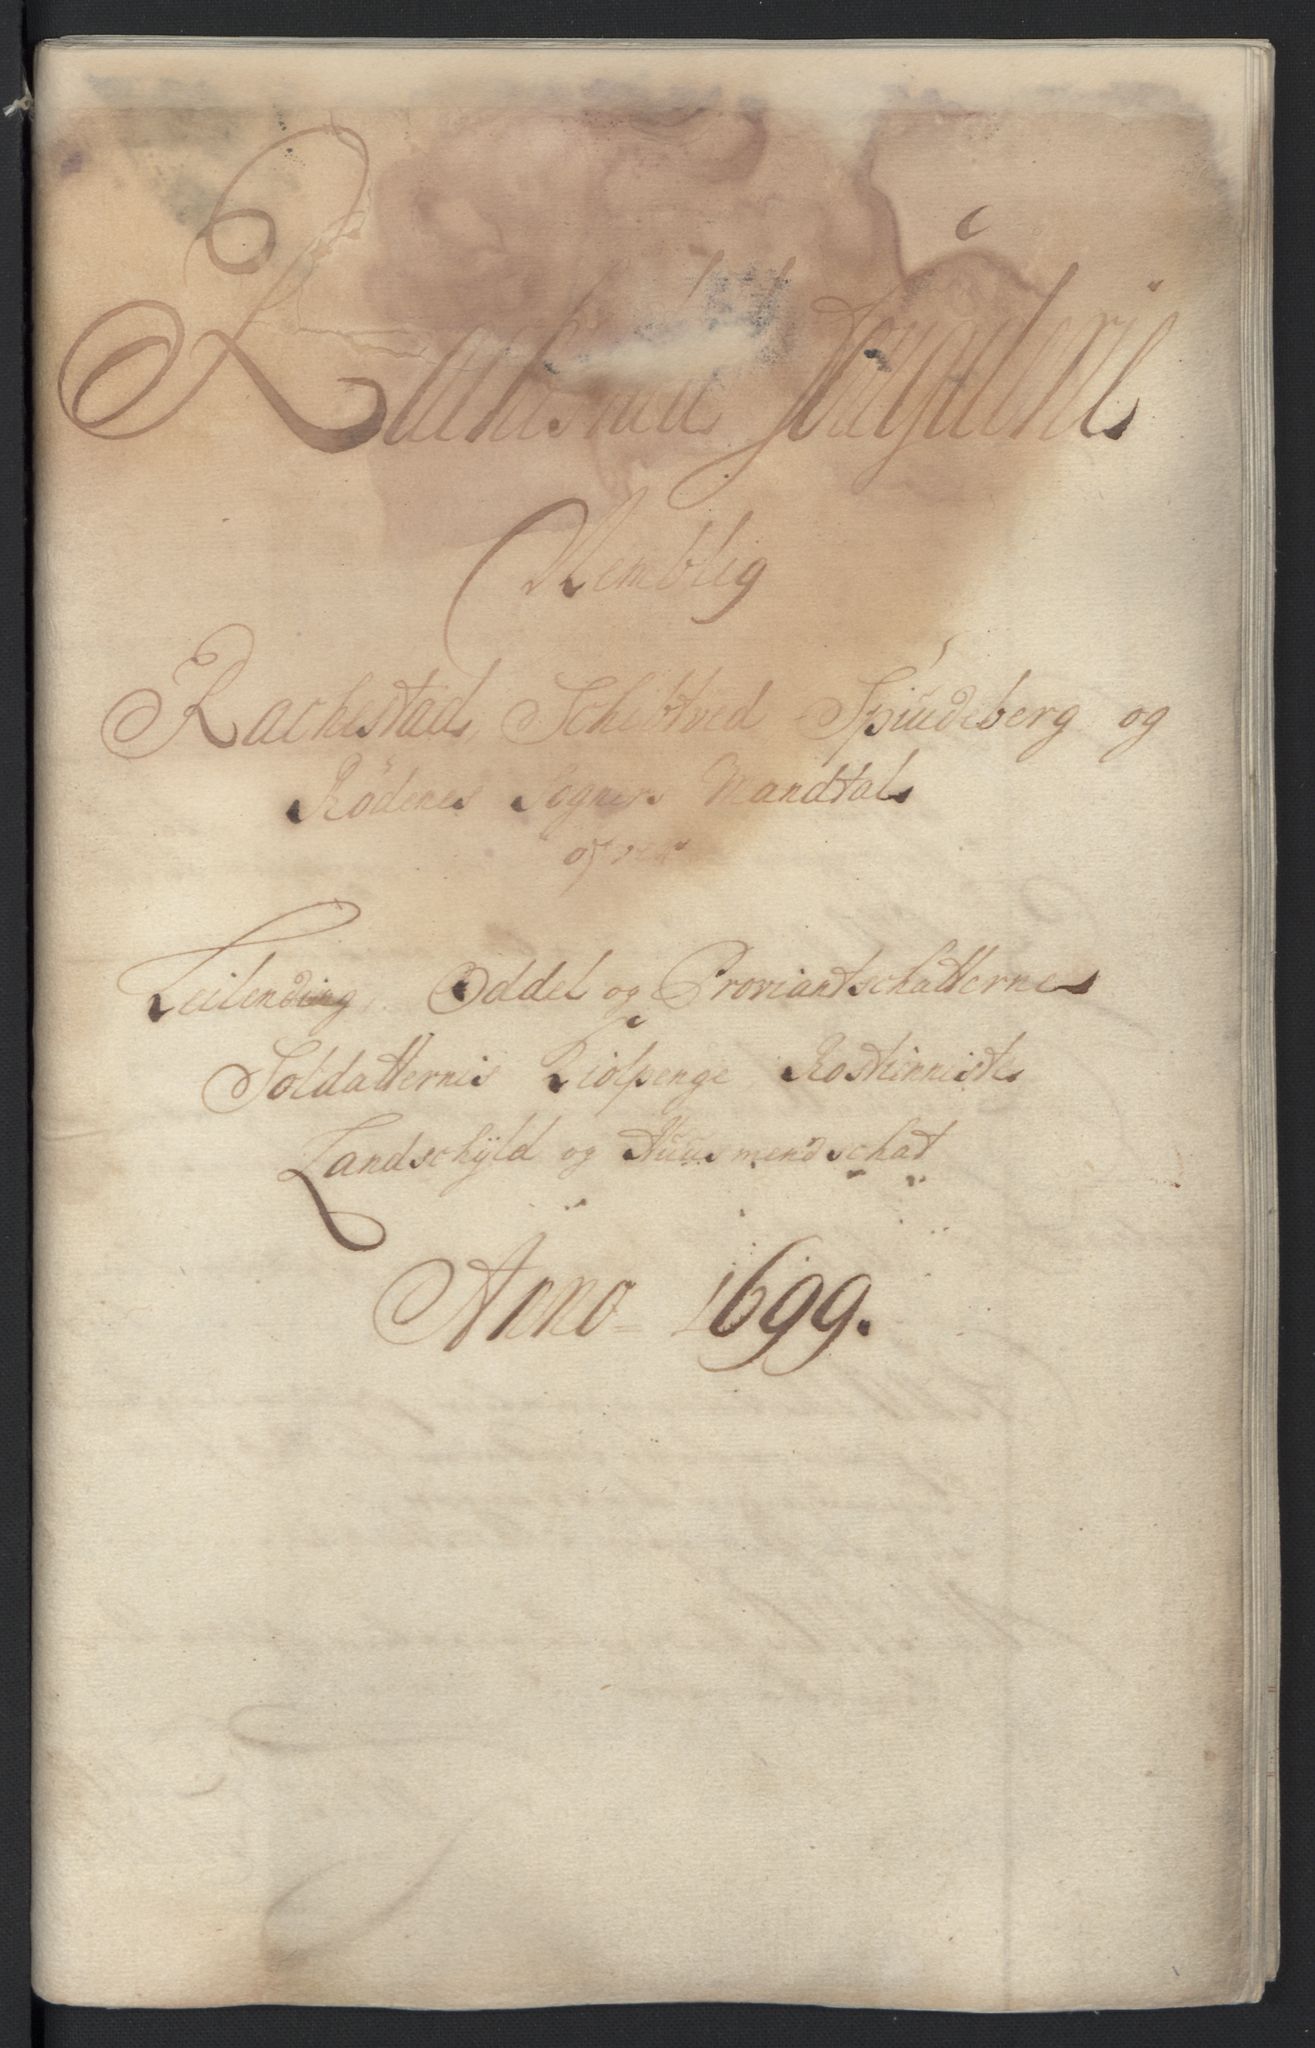 Rachestads Fougderie
Nemblig
Rachestad, Schibtved Spiudeberg og
Rødenes Sogners Mandtal
ofver
Leilending, Oddel og Proviantschatterne
Soldatternis Kiolpenge Rostienniste
Landschÿld og Huusmendschat
Anno 1699.